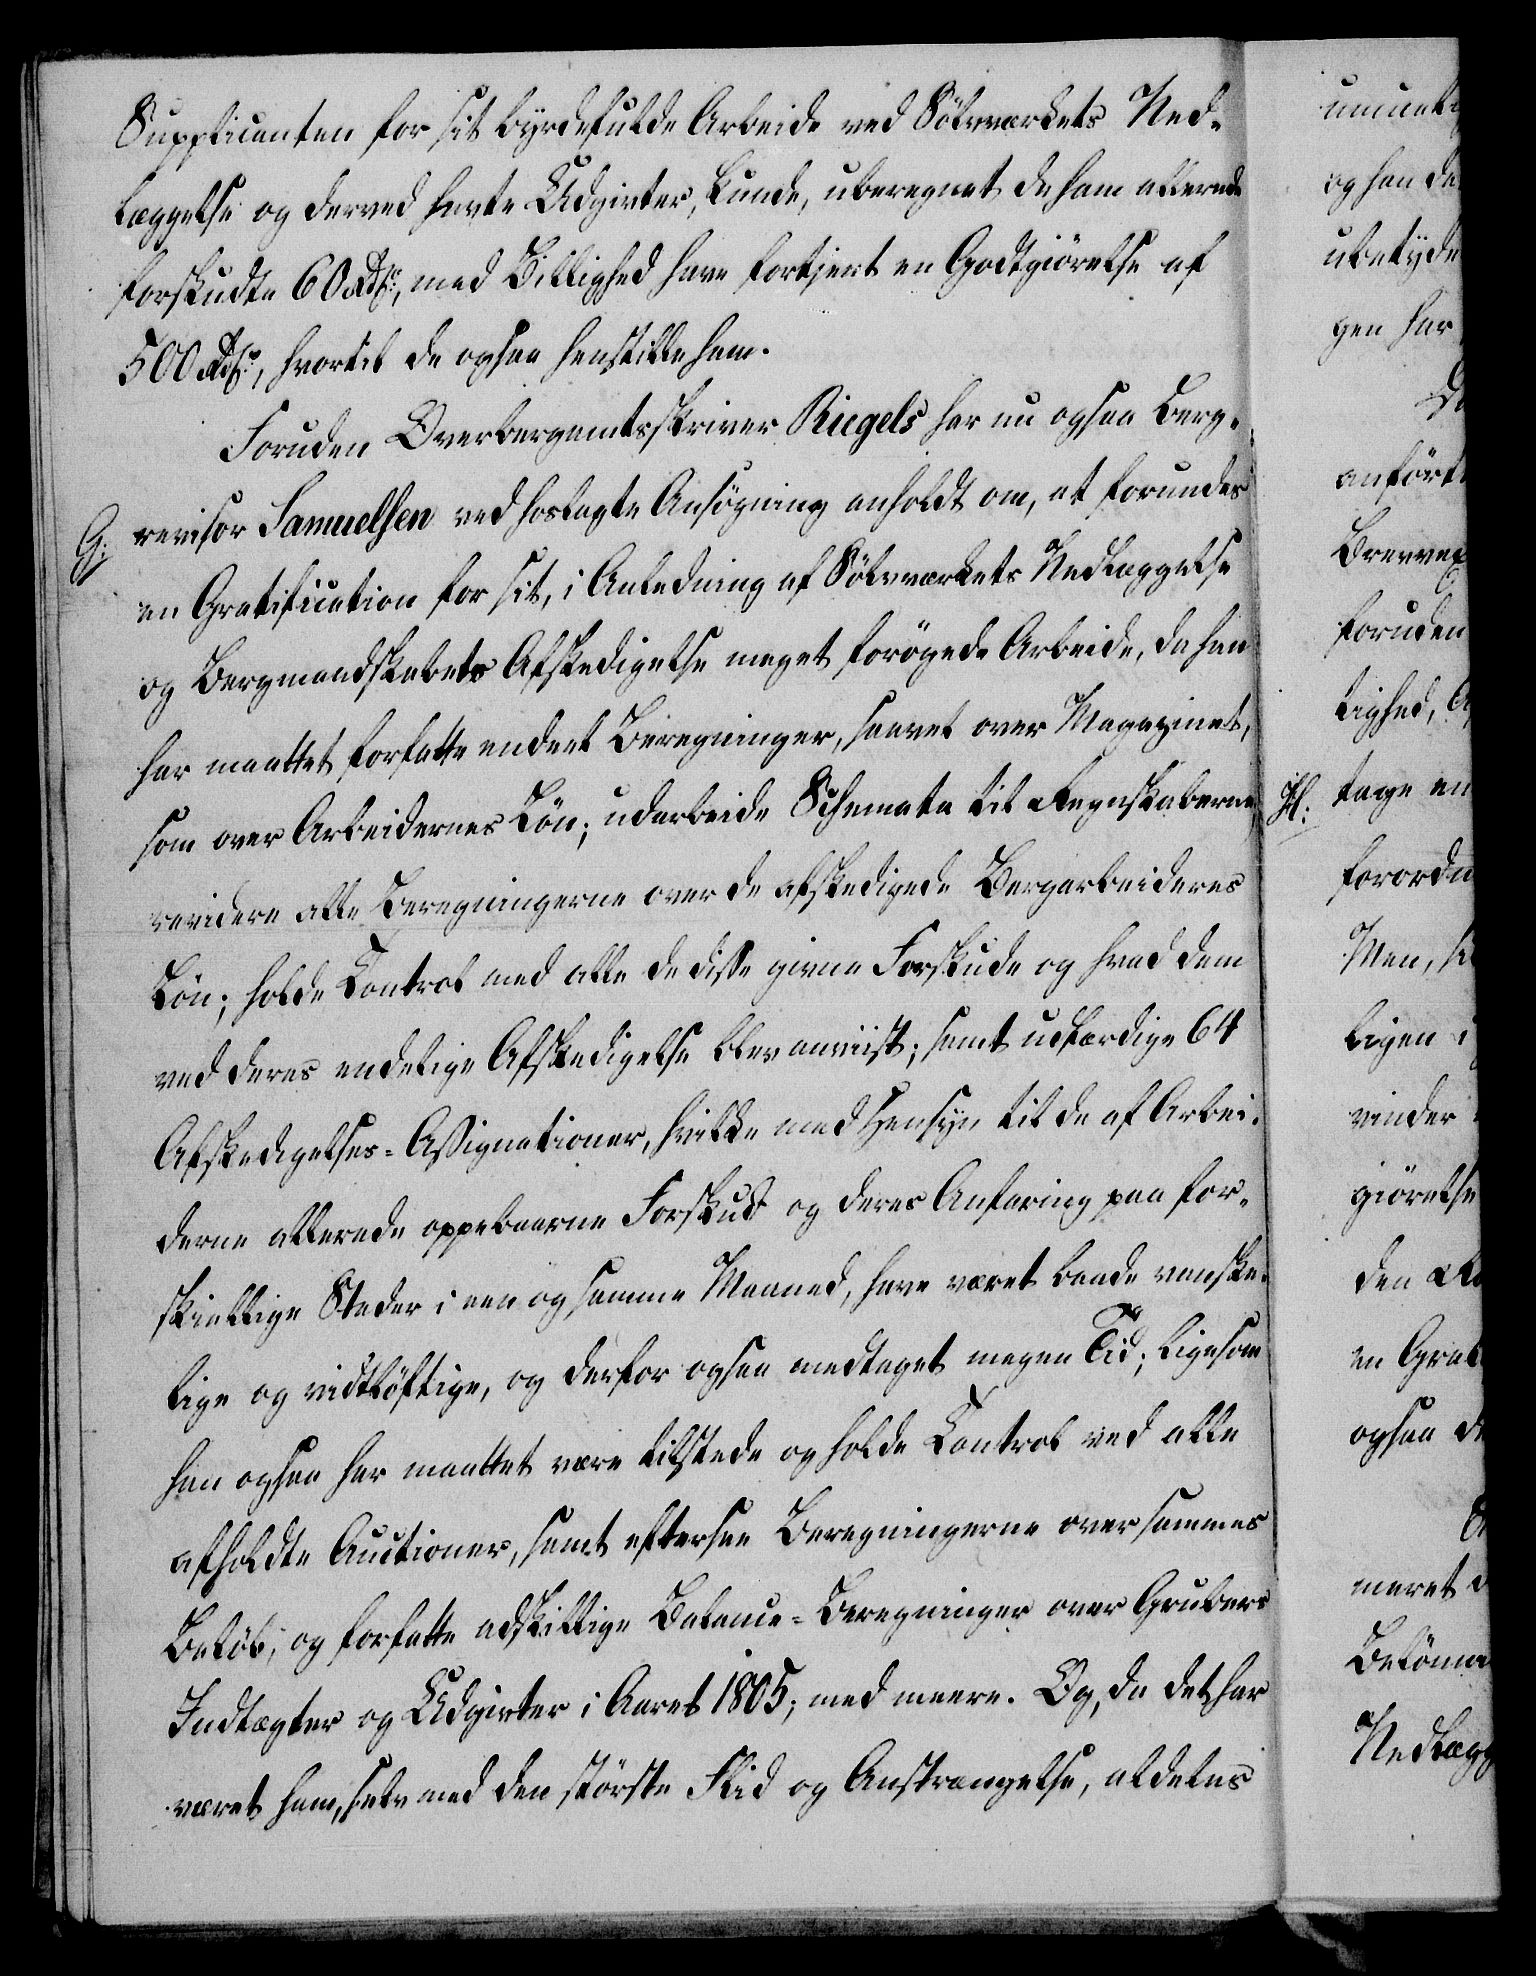 Supplicanten for sit byrdefulde Arbeide ved Sölvværkets Ned-
læggelse og derved havte Udgivter, kunde, uberegnet de ham allerede
forskudte 60 Rdlr:, med Billighed have fortjent en Godtgiörelse af
500 Rdlr:, hvortil de ogsaa henstille ham.
Foruden Overbergamtsskriver Riegels har nu ogsaa Berg-
G: revisor Samuelsen ved hoslagte Ansögning anholdt om, at forundes
en Gratification for sit, i Anledning af Sölvværkets Nedlæggelse
og Bergmandskabets Afskedigelse meget forögede Arbeide, da han
har maattet forfatte endeel Beregninger, saavel over Magazinet,
som over Arbeidernes Lön; udarbeide Schemata til Regnskaberne,
revidere alle Beregningerne over de afskedigede Bergarbeideres
Lön; holde Control med alle de disse givne Forskude og hvad dem
ved deres endelige Afskedigelse blev anviist; samt udfærdige 64
Afskedigelses-Assignationer, hvilke med Hensyn til de af Arbei-
derne allerede oppebaarne Forskud og deres Anfaring paa for-
skiellige Steder i een og samme Maaned, have været baade vanske-
lige og vidtlöftige, og derfor ogsaa medtaget megen Tid; ligesom
han ogsaa har maattet være tilstede og holde Control ved alle
afholdte Auctioner, samt eftersee Beregningerne over sammes
Belöb; og forfatte adskillige Balance-Beregninger over Grubers
Indtægter og Udgivter i Aaret 1805; med meere. Og, da det har
været ham, selv med den störste Flid og Anstrængelse, aldeles
og han de
ubetyde
gen har
anfört
foruden
lighed,
H: tage en
forordn
Men,
ligen
vinder
giörelse
den
en Grat
ogsaa de
meret
Belönn
Nedlægg